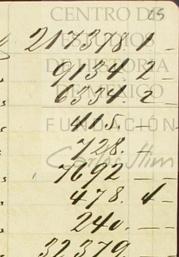 CENTRO DE
65
ESTUDIOS
217378.1 –
DE HISTORIA
9134 2
DE MÉXICO
6334. 2
415. –
FUNDACIÓN
728. –
Carlos Slim
7692 –
478. 4 –
240. –
32379